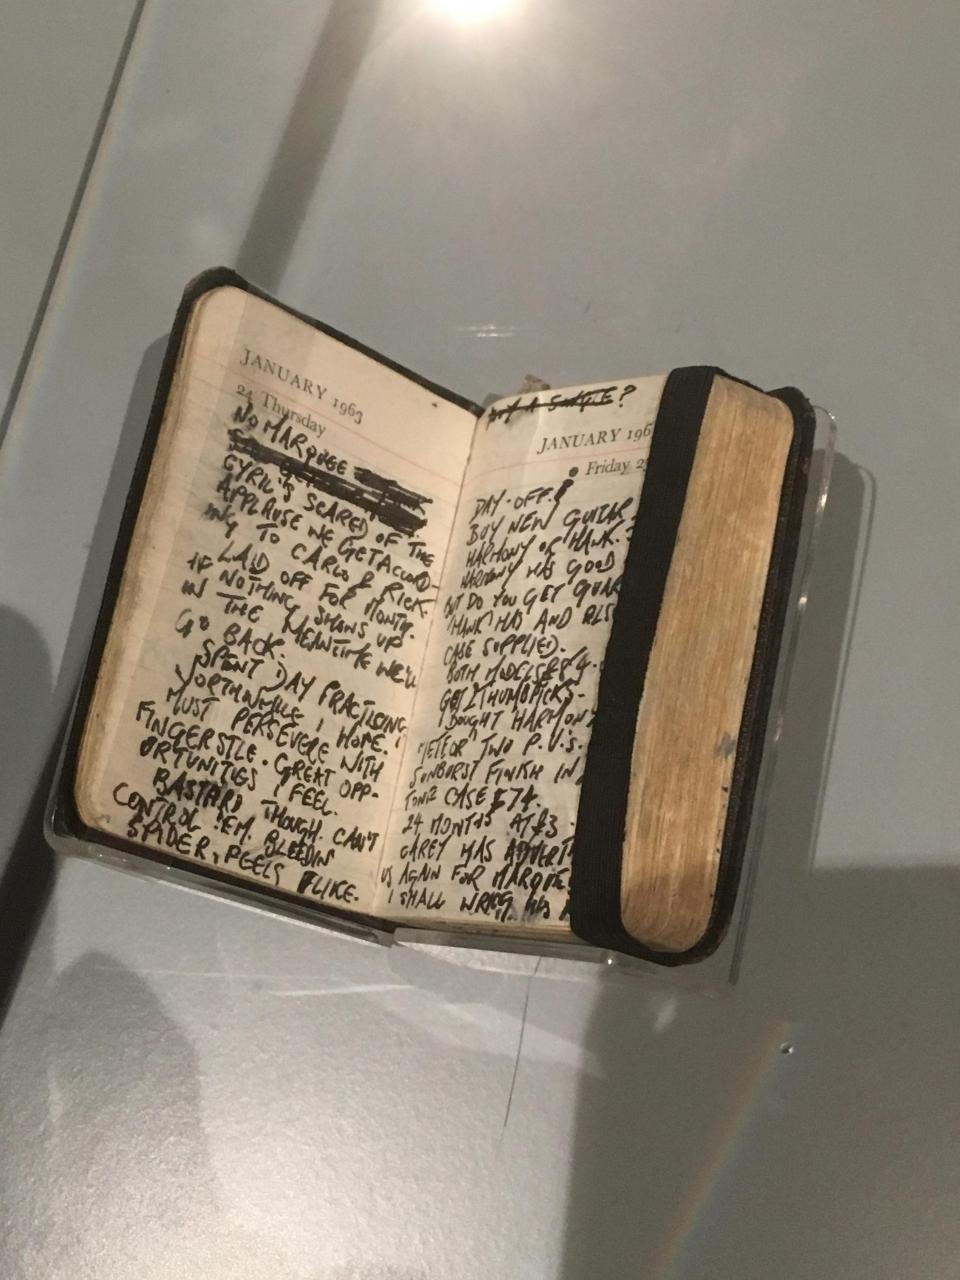 JANUARY 1963
24 Thursday
NO MARQUEE
CYRIL'S SCARED OF THE
APPLAUSE WE GET ACCORD-
ING TO CARLO & RICK.
IF LAID OFF FOR MONTH.
IN NOTHING SHOWS UP
IN THE MEANTIME WE'LL
GO BACK.
SPENT DAY PRACTISING
WORTHWHILE I HOPE.
MUST PERSEVERE WITH
FINGERSTLE. GREAT OPP-
ORTUNITIES I FEEL.
BASTARD THOUGH. CAN'T
CONTROL 'EM. BLEEDIN
SPIDER, FEELS LIKE.
A SINGLE?
JANUARY 196
Friday 2
DAY-OFF.
BUY NEW GUITAR
HARMONY OR HAWK.
HARMONY HAS GOOD
BUT DO YOU GET GUAR
HAS AND ALS
CASE SUPPLIED.
BOTH MODELS £74.
GOT 2 THUMBPICKS-
I BOUGHT HARMONY
METEOR TWO P.U.'S.
SUNBURST FINISH IN
CASE £74.
24 MONTHS AT £3
CAREY HAS ADVERT
US AGAIN FOR MARQUEE
I SHALL WRING HIS